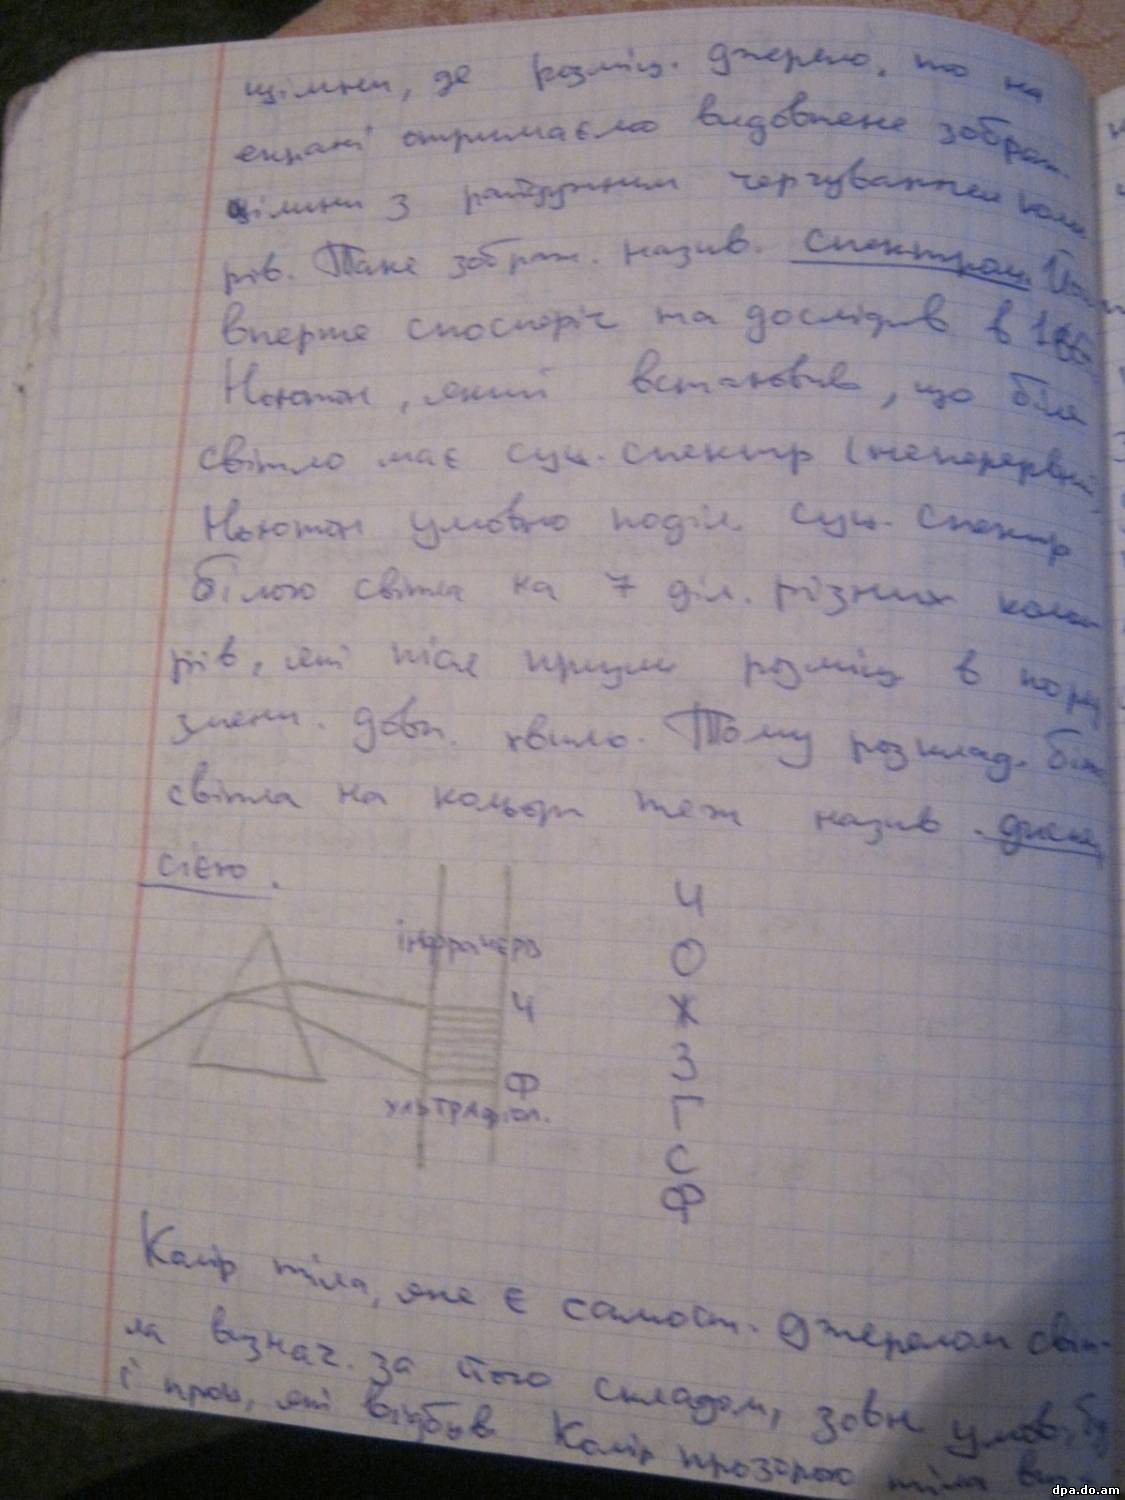 щілини, де розміщ. джерело, то на
екрані отримаємо видовжене зображ.
щілини з райдужним чергуванням кольо
рів. Таке зображ. назив. спектром. Його
вперше спостеріг та дослідив в 166
Ньютон, який встановив, що біле
світло має суц. спектр (неперервний)
Ньютон умовно поділ. суц. спектр
білого світла на 7 діл. різних кольо
рів, які після призми розміщ в поряд
змен. довж. хвилю. Тому розклад. біл
світла на кольори теж назив. диспер
сією.
інфрачерв
Ч
Ф
ультрафіол.
Ч
О
Ж
З
Г
С
Ф
Колір тіла, яке є самост. джерелом світ-
ла визнач. за його складом, зовн умов, бу
і проц, які відбув Колір прозорого тіла визн
dpa.do.am